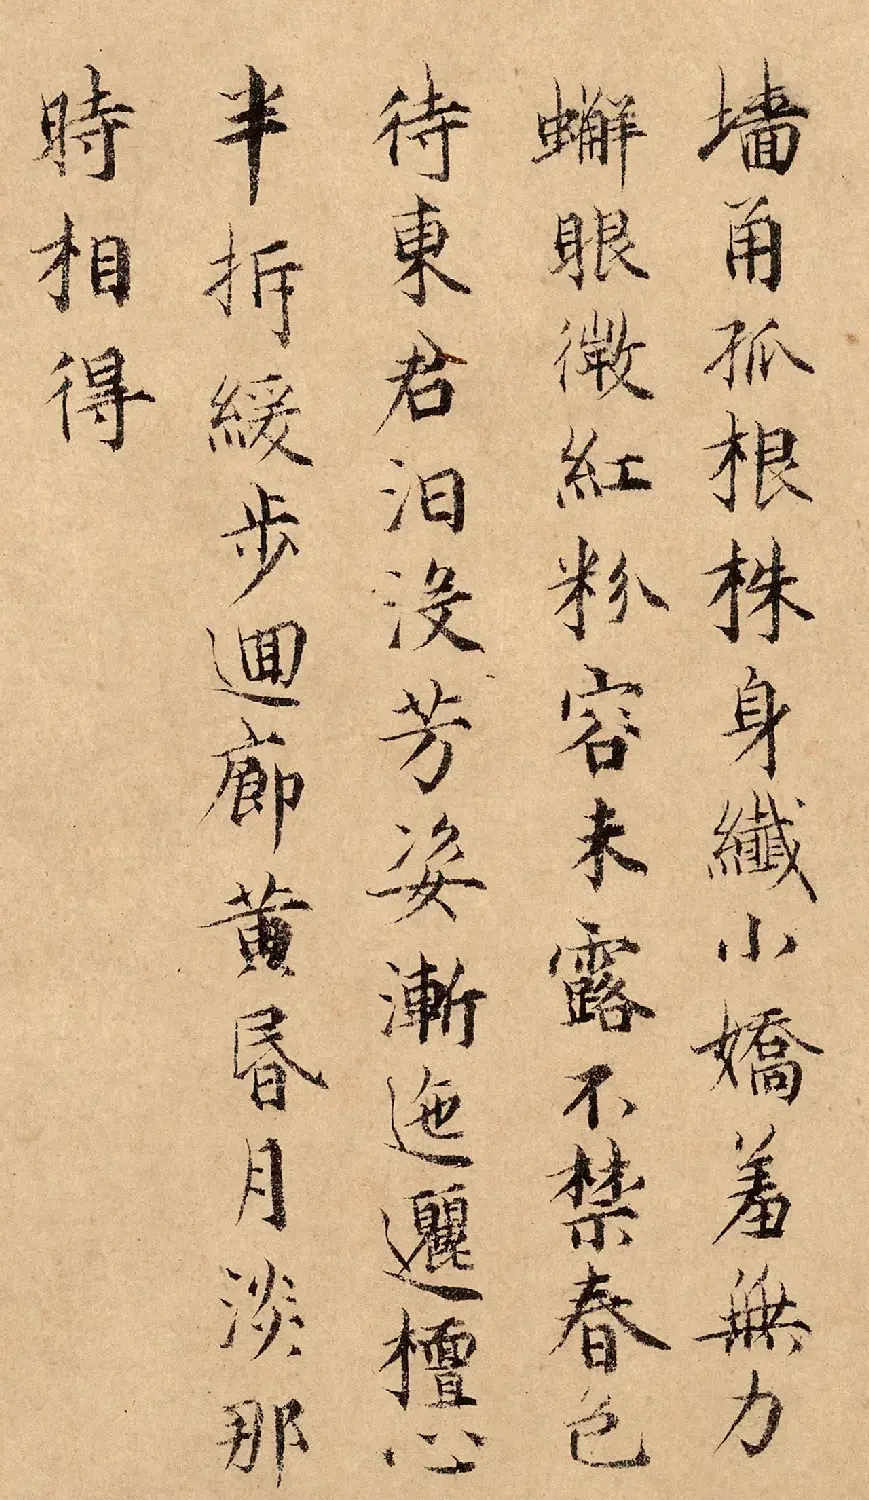 墻角孤根株身纖小嬌羞無力
蠏眼微紅粉容未露不禁春色
待東君汩没芳姿漸迤邐檀心
半拆緩步迴廊黄昬月淡那
時相得